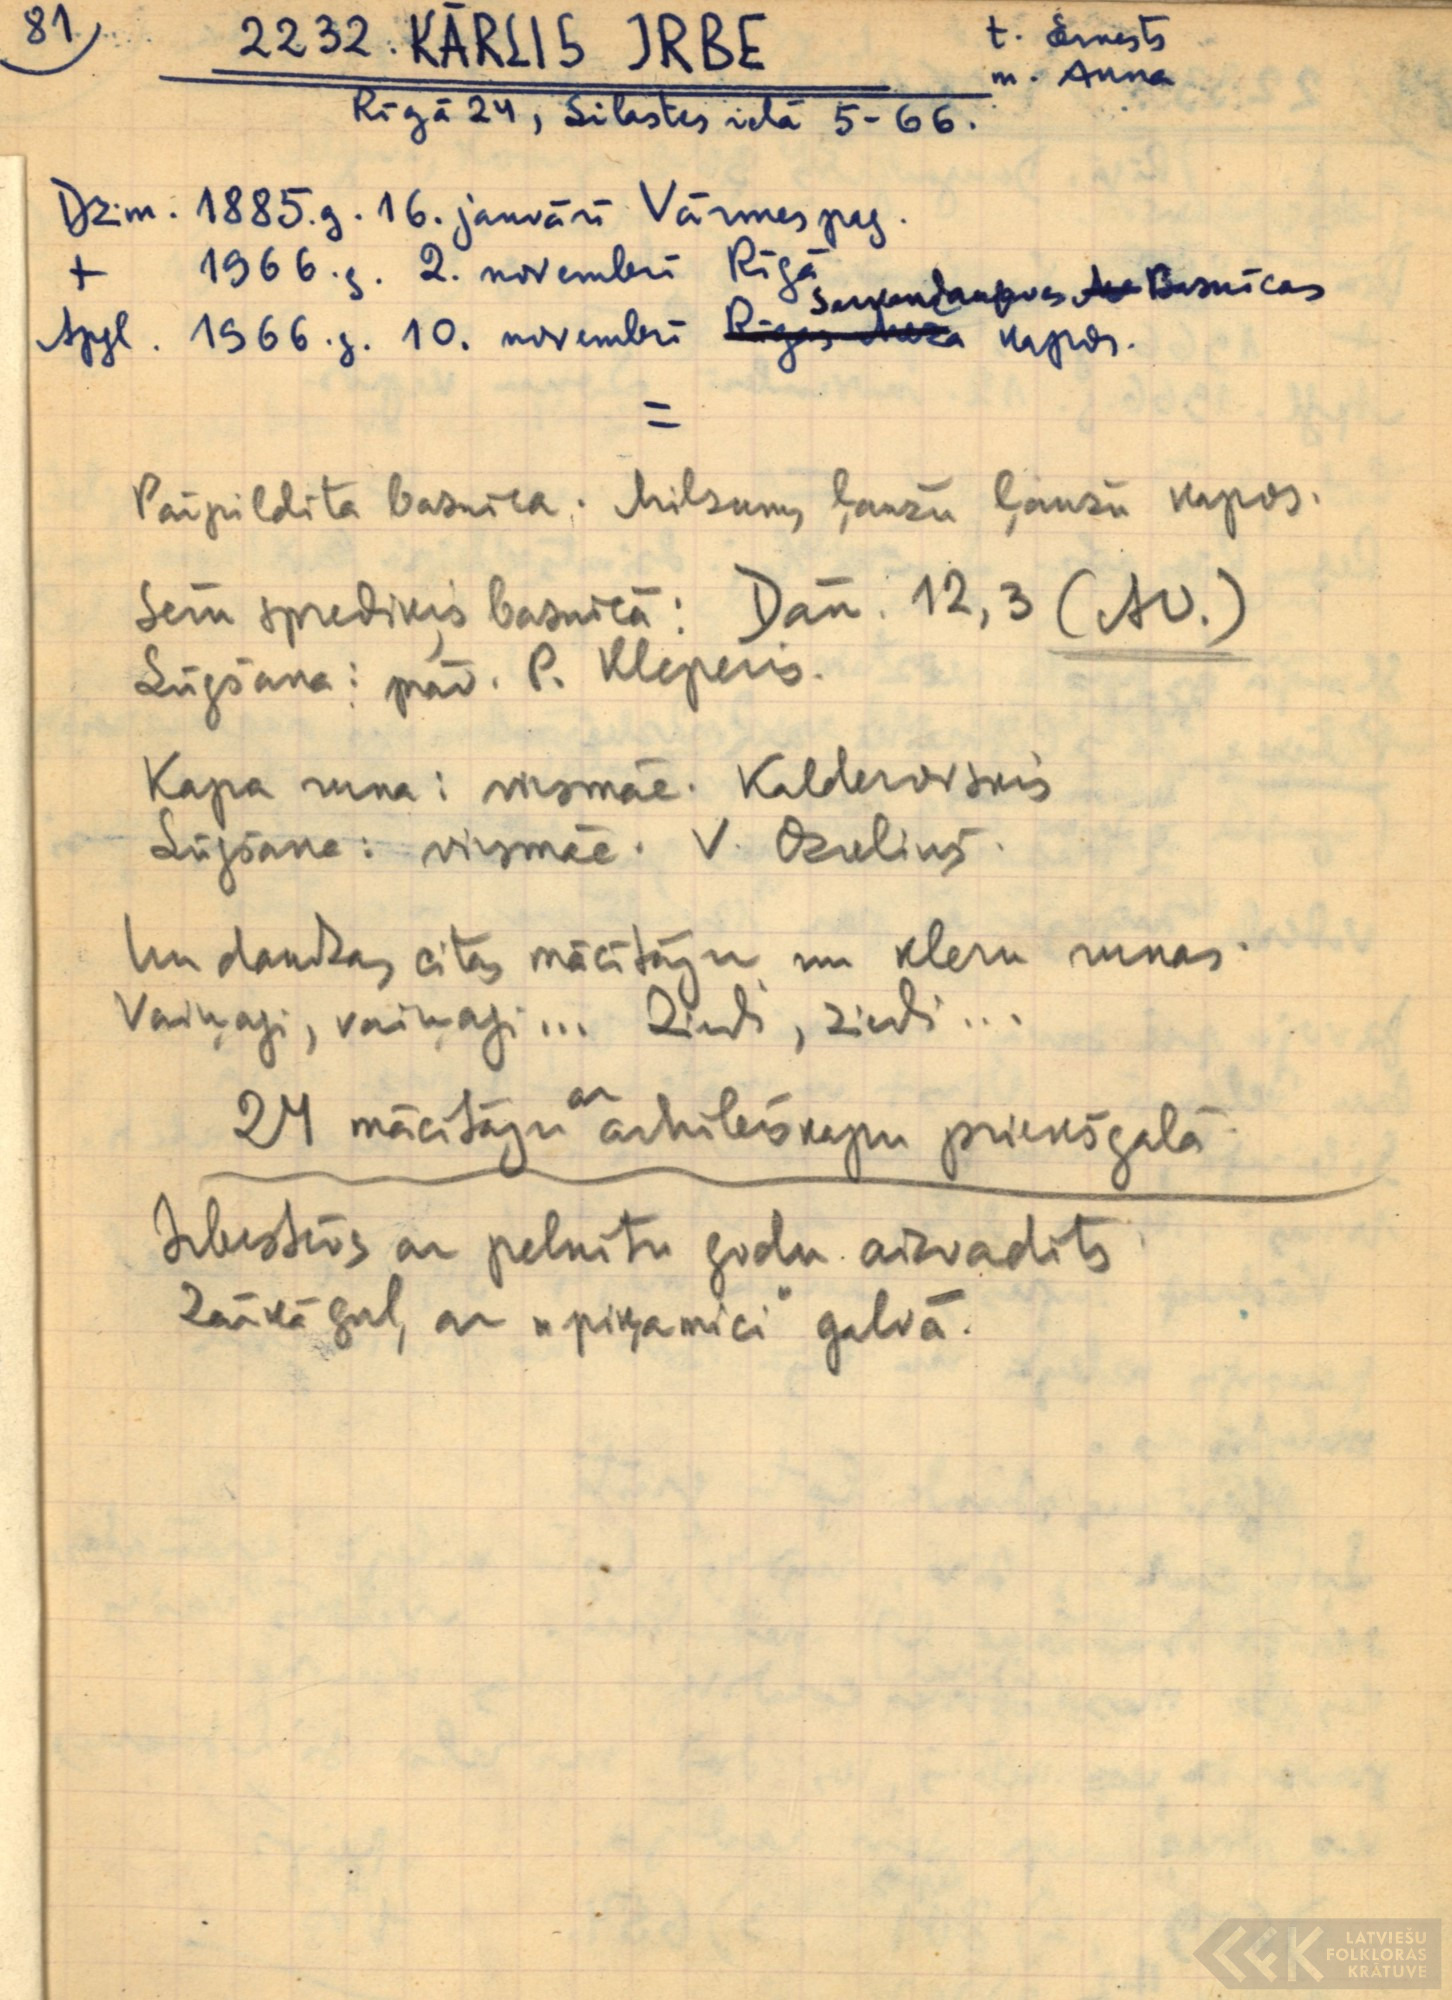 81
2232. KĀRLIS IRBE
t. Ernests
m. Anna
Rīgā 24, Silastes ielā 5-66.
Dzim. 1885.g. 16. janvārī Vārmes pag.
+ 1966.g. 2. novembrī Rīgā
Sarkandaugavas Baznīcas
Apgl. 1966.g. 10. novembrī Rīgas Meža kapos.
=
Pārpildīta baznīca. Milzums ļaužu ļaužu kapos.
Sēru sprediķis baznīcā: Dan. 12,3 (AV.)
Lūgšana: prāv. P. Kleperis.
Kapa runa: virsmāc. Kalderovskis
Lūgšana: virsmāc. V. Ozoliņš.
Un daudzas citas mācītāju un kleru runas.
Vaiņagi, vaiņagi... Ziedi, ziedi...
24 mācītāju ar arhibīskapu priekšgalā
Irbestēvs ar pelnītu godu aizvadīts.
Zārkā guļ, ar "piķamici" galvā.
LATVIEŠU
FOLKLORAS
KRĀTUVE